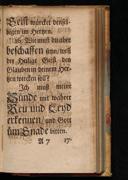 Geist würcket denselbigen im Hertzen.
16. Wie must du aber
beschaffen seyn/ weñ
der Heilige Geist den
Glauben in deinem Hertzen
wircken soll?
Ich muß meine
Sünde mit wahrer
Reu und Leyd
erkennen/ und Gott
um Gnade bitten.
A 7 17.